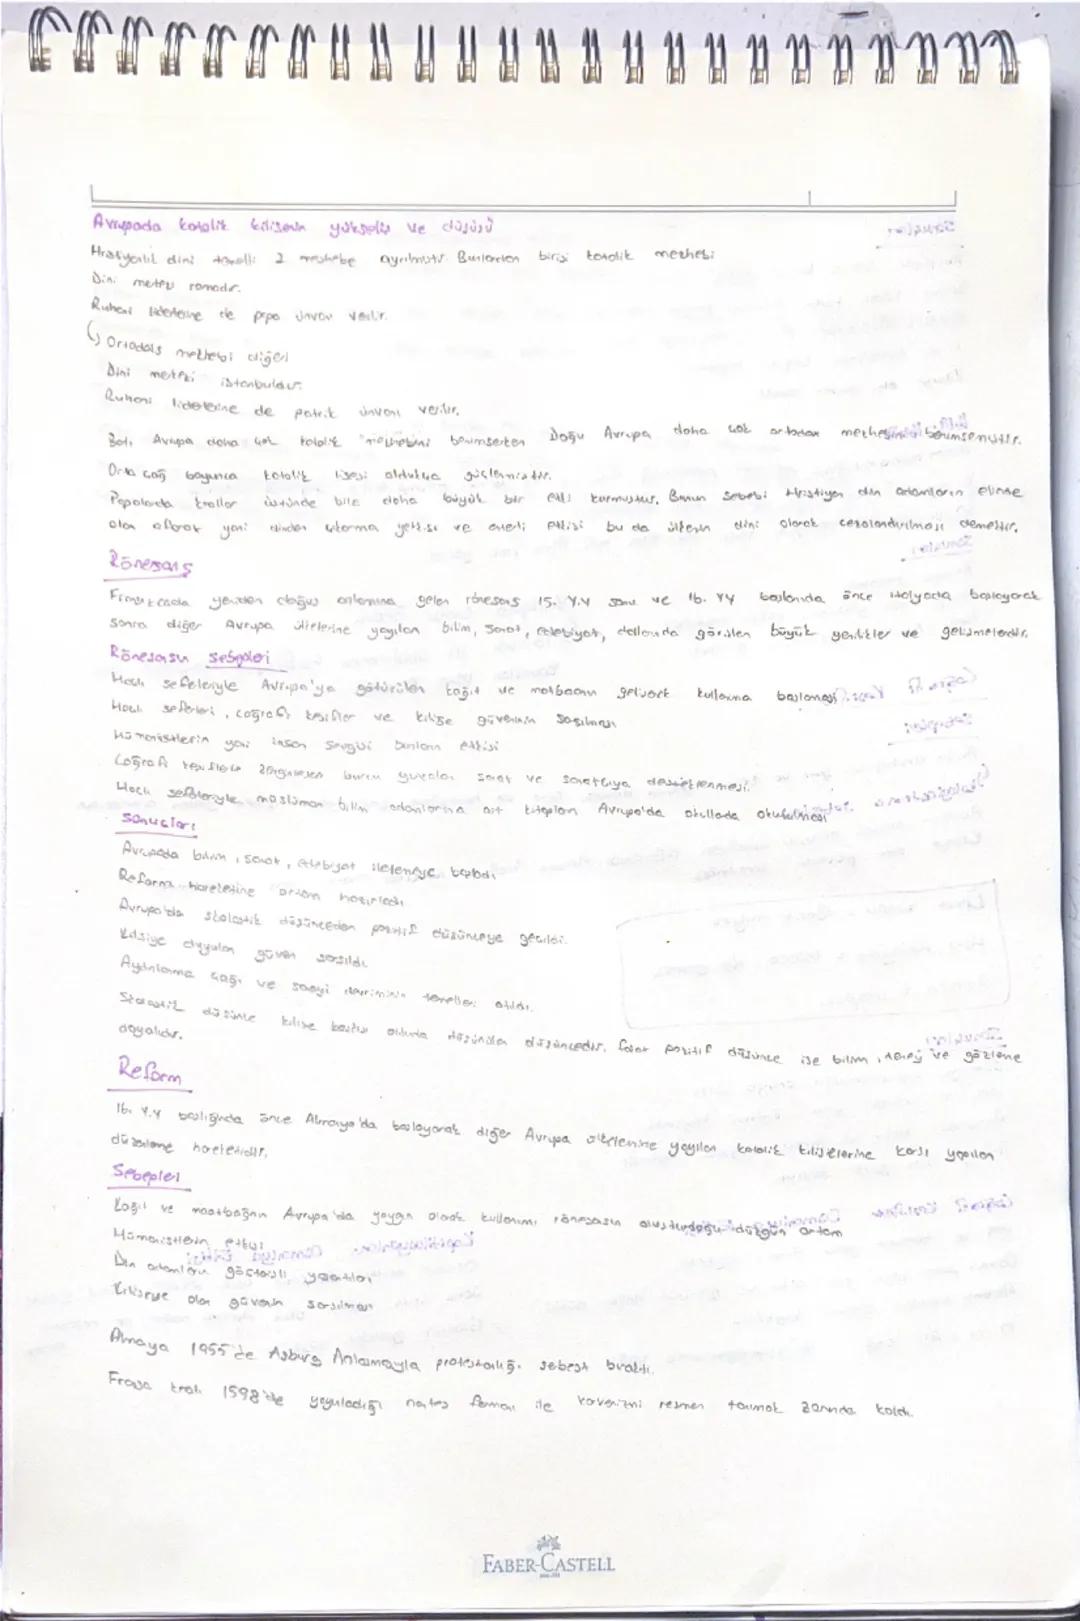 Avrupada katolik kilisenin yükseliş ve düşüşü
Hristiyanlık dini temelli 2 mezhebe ayrılmıştır. Bunlardan birisi katolik mezhebi
Dini merkezi romadır.
Ruhani liderlerine de papa ünvanı verilir.
Ortadoks mezhebi diğeri
Dini merkezi istanbuldur.
Ruhani liderlerine de patrik ünvanı verilir.
Batı Avrupa daha çok katolik mezhebini benimserken Doğu Avrupa daha çok ortadox mezhebini benimsemiştir.
Orta çağ boyunca katolik oldukça güçlenmiştir.
Papalarda krallar üstünde bile daha büyük bir etki kurmuştur. Bunun sebebi Hristiyan din adamların elinde
olan aforoz yani dinden çıkarma yetkisi ve enterdi etkisi bu da ülkenin dini olarak cezalandırılması demektir.
Rönesans
yeniden doğuş anlamına gelen rönesans 15. Y.Y sonu ve 16. YY başlarında önce italyada başlayarak
sonra diğer Avrupa ülkelerine yayılan bilim, sanat, edebiyat, dallarında görülen büyük yenilikler ve gelişmelerdir.
Rönesansın sebepleri
Haçlı seferleriyle Avrupa'ya götürülen kağıt ve matbaanın kullanıma başlaması
Haçlı seferleri, coğrafi keşifler ve kilise güveninin sarsılması
Hümanistlerin yani insan sevgisi etkisi
Coğrafi keşiflerle zenginleşen sanat ve sanatçıya desteklenmesi.
Haçlı seferleriyle müslüman bilim adamlarına ait kitapların Avrupa'da okullarda okutulması
Sonuçları
Avrupada bilim, sanat, edebiyat ilerlemeye başladı
Reform hareketine ortam hazırladı
Avrupa'da skolastik düşünceden pozitif düşünceye geçildi.
Kilisiye duyulan güven sarsıldı
Aydınlanma çağı ve sanayi devriminin temelleri atıldı.
Skolastik düşünce kilise baskısı altında düşünülen düşüncedir. fakat pozitif düşünce ise bilim, deney ve gözleme
dayalıdır.
Reform
16. Y.Y başlığında önce Almanya'da başlayarak diğer Avrupa ülkelerine yayılan katolik kiliselerine karşı yapılan
düzenleme hareketidir.
Sebepleri
Kağıt ve maatbağnın Avrupa'da yaygın olarak kullanımı rönesansın oluşturduğu düzgün ortam
Hümanistlerin etkisi
Din adamların gösterişli yaşantıları
Kiliseye olan güvenin sarsılması
Almaya 1955'de Asburg Anlaşmayla protestanlığı sebest bıraktı.
Fransa kralı 1598'de yayınladığı nantes fermanı ile kavenizmi resmen tanımak zorunda kaldı.
FABER-CASTELL